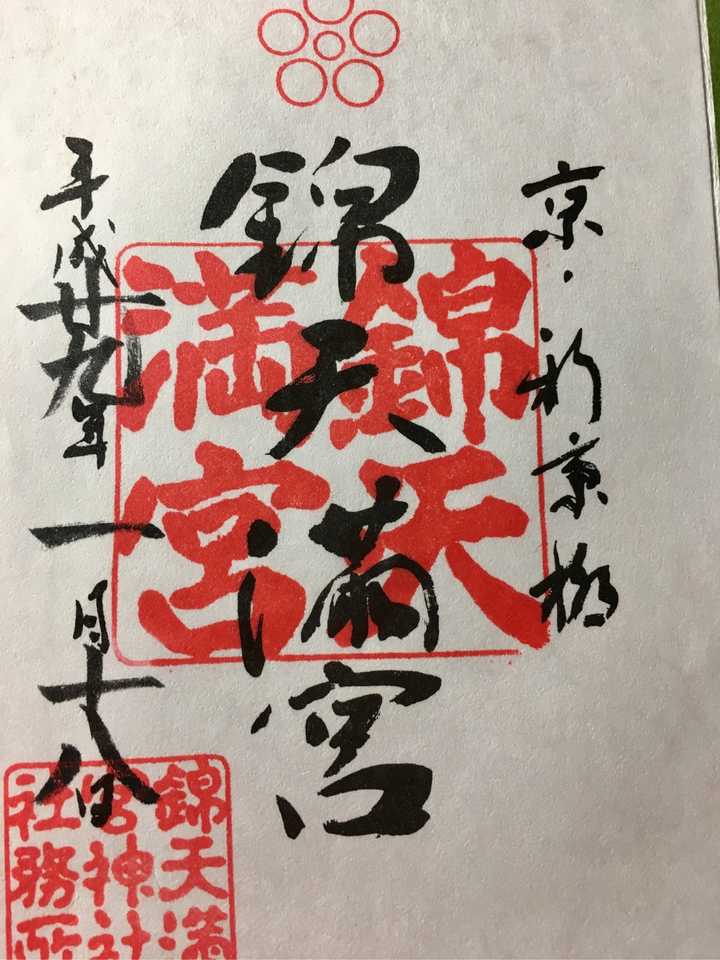 京・新京極
錦天満宮
錦天
満宮
平成廿九年一月十八日
錦天満
宮神社
社務所